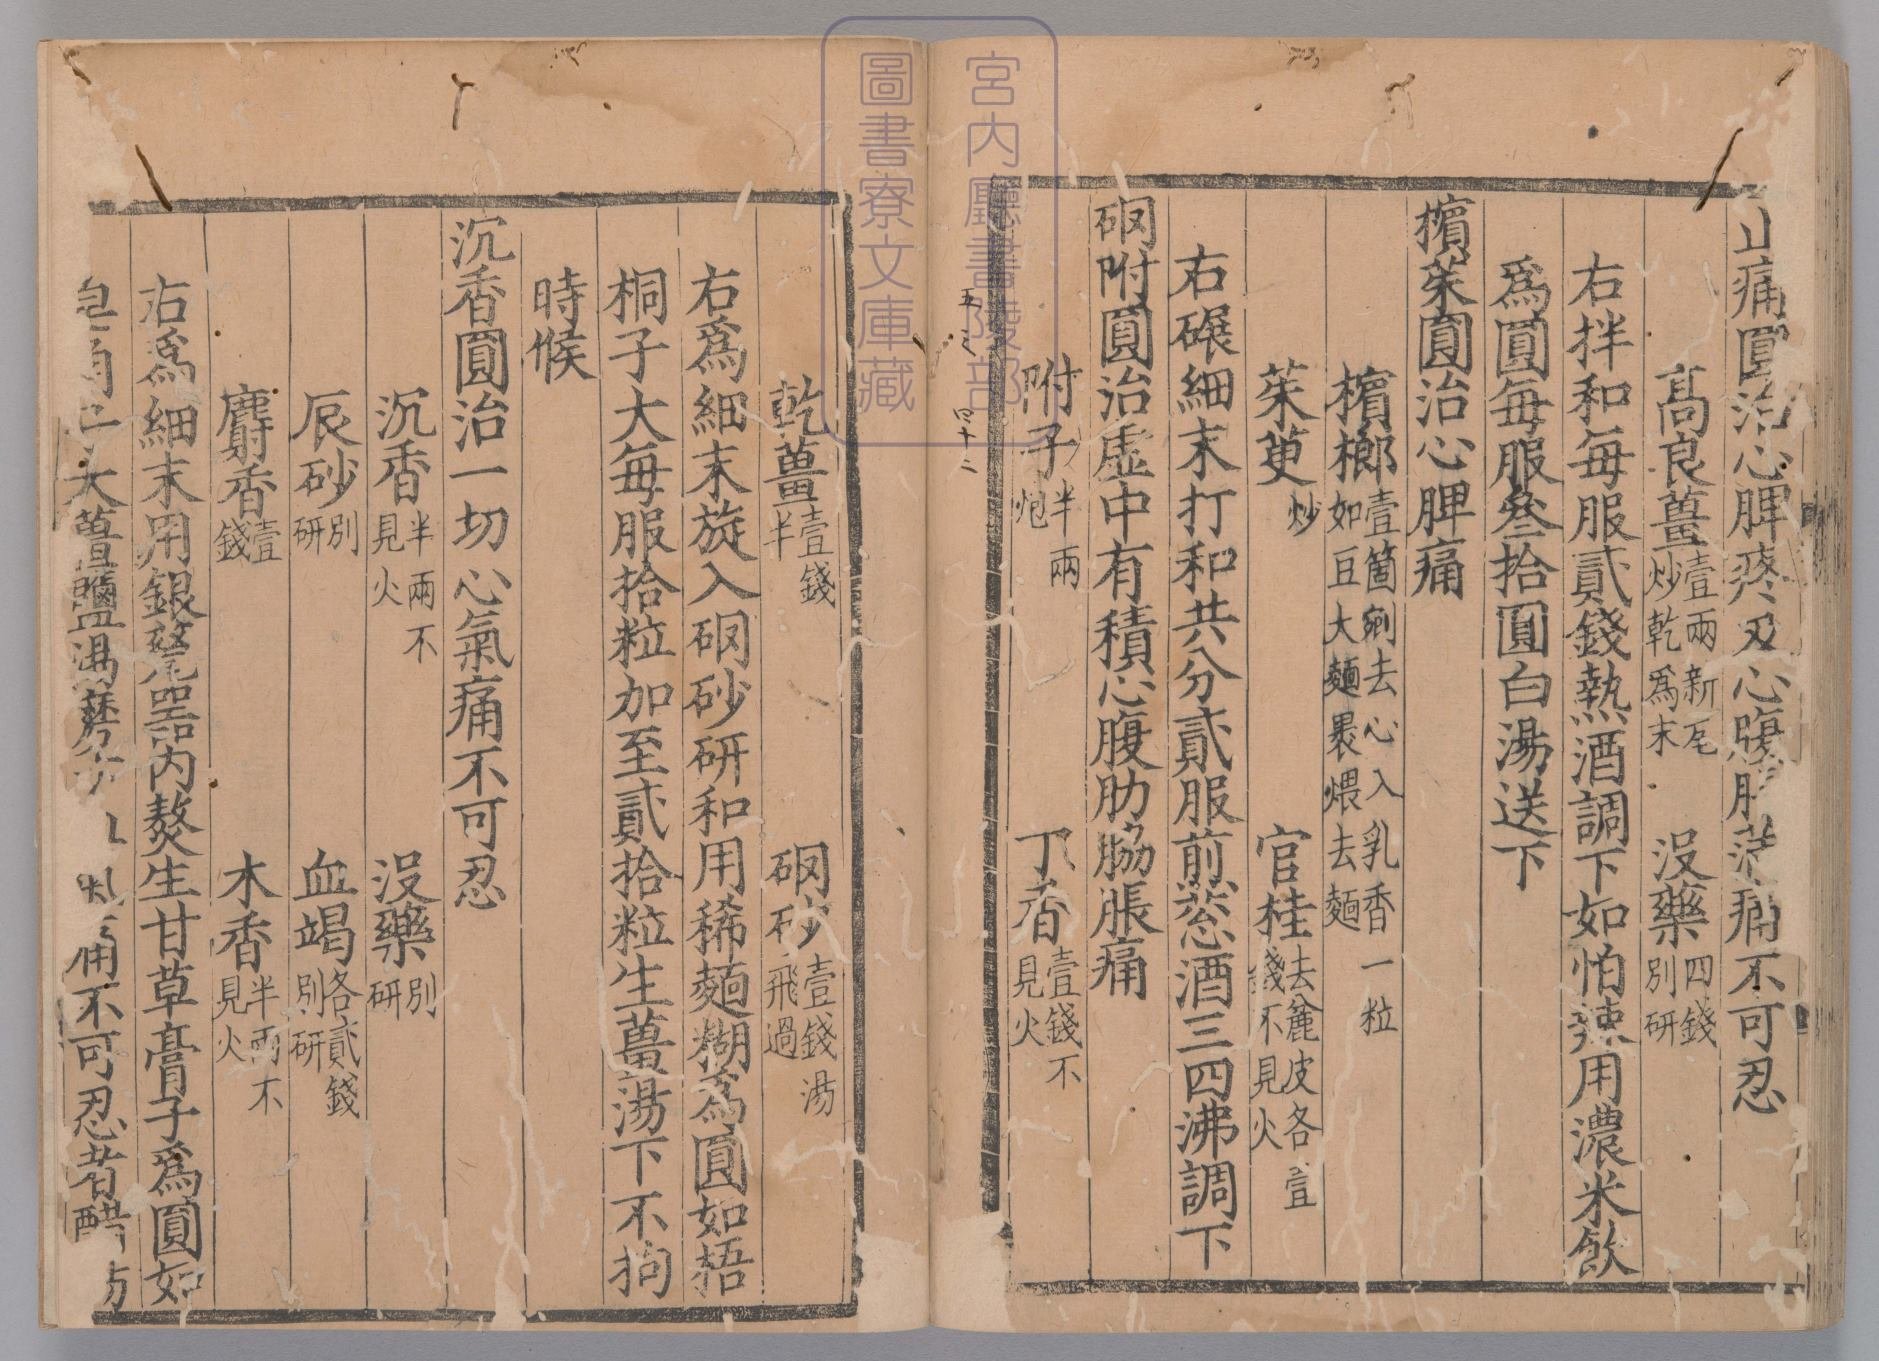 止痛圓治心脾疼及心腹 痛不可忍
高良薑壹兩新瓦炒乾爲末 沒藥四錢別研
右拌和每服貳錢熱酒調下如怕辣用濃米飲
爲圓每服叄拾圓白湯送下
檳茱圓治心脾痛
檳榔壹箇剜去心入乳香一粒如豆大麵裹煨去麵
茱萸炒 官桂去麄皮各壹錢不見火
右碾細末打和共分貳服前慈酒三四沸調下
硇附圓治虛中有積心腹肋脇脹痛
附子半兩炮 丁香壹錢不見火
五之 四十二
乾薑壹錢半 硇砂壹錢湯飛過
右爲細末旋入硇砂研和用稀麵糊爲圓如梧
桐子大每服拾粒加至貳拾粒生薑湯下不拘
時候
沉香圓治一切心氣痛不可忍
沉香半兩不見火 沒藥別研
辰砂別研 血竭各貳錢別研
麝香壹錢 木香半兩不見火
右爲細末用銀甆器內熬生甘草膏子爲圓如
皂 子大薑鹽湯磨 痛不可忍者醋
宮內廳書陵部
圖書寮文庫藏